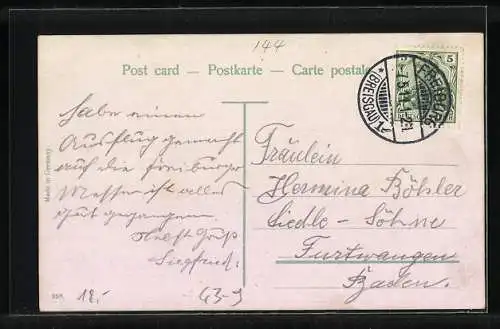 144
Post card - Postkarte - Carte postale
5
FREIBURG
(BREISGAU)
Habe einen
Ausflug gemacht
auf die Freiburger
Messe ist alles
gut gegangen.
Gruß
Siegfried.
Fräulein
Hermina Böhler
Siedle-Söhne
Furtwangen
Baden.
Made in Germany.
12.-
63-9